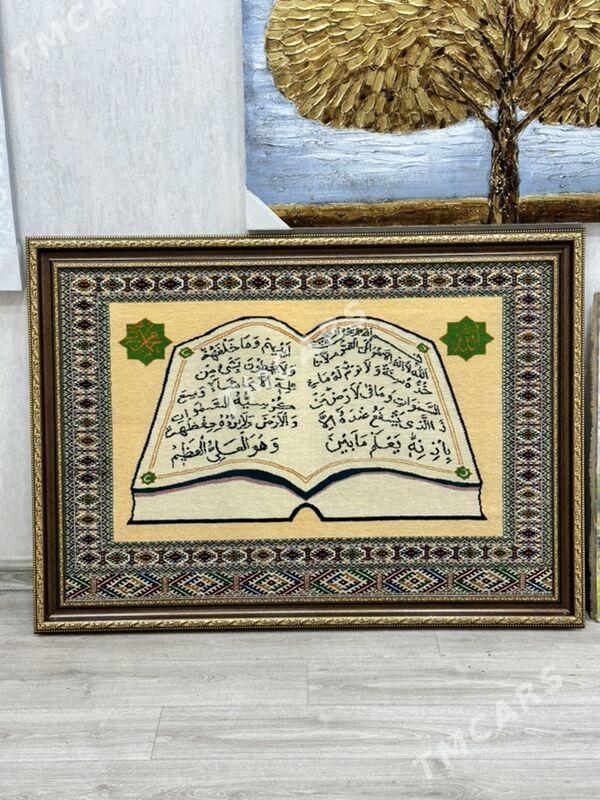 TMCARS
الله
محمد
الله لا اله الا هو الحي القيوم لا تا
خذه سنة ولا نوم له ما في
السموات وما في الارض من
ذا الذي يشفع عنده الا
باذنه يعلم ما بين
ايديهم وما خلفهم
ولا يحيطون بشئ من
علمه الا بما شاء وسع
كرسيه السموات
والارض ولا يؤده حفظهما
وهو العلي العظيم
TMCARS
TMCARS